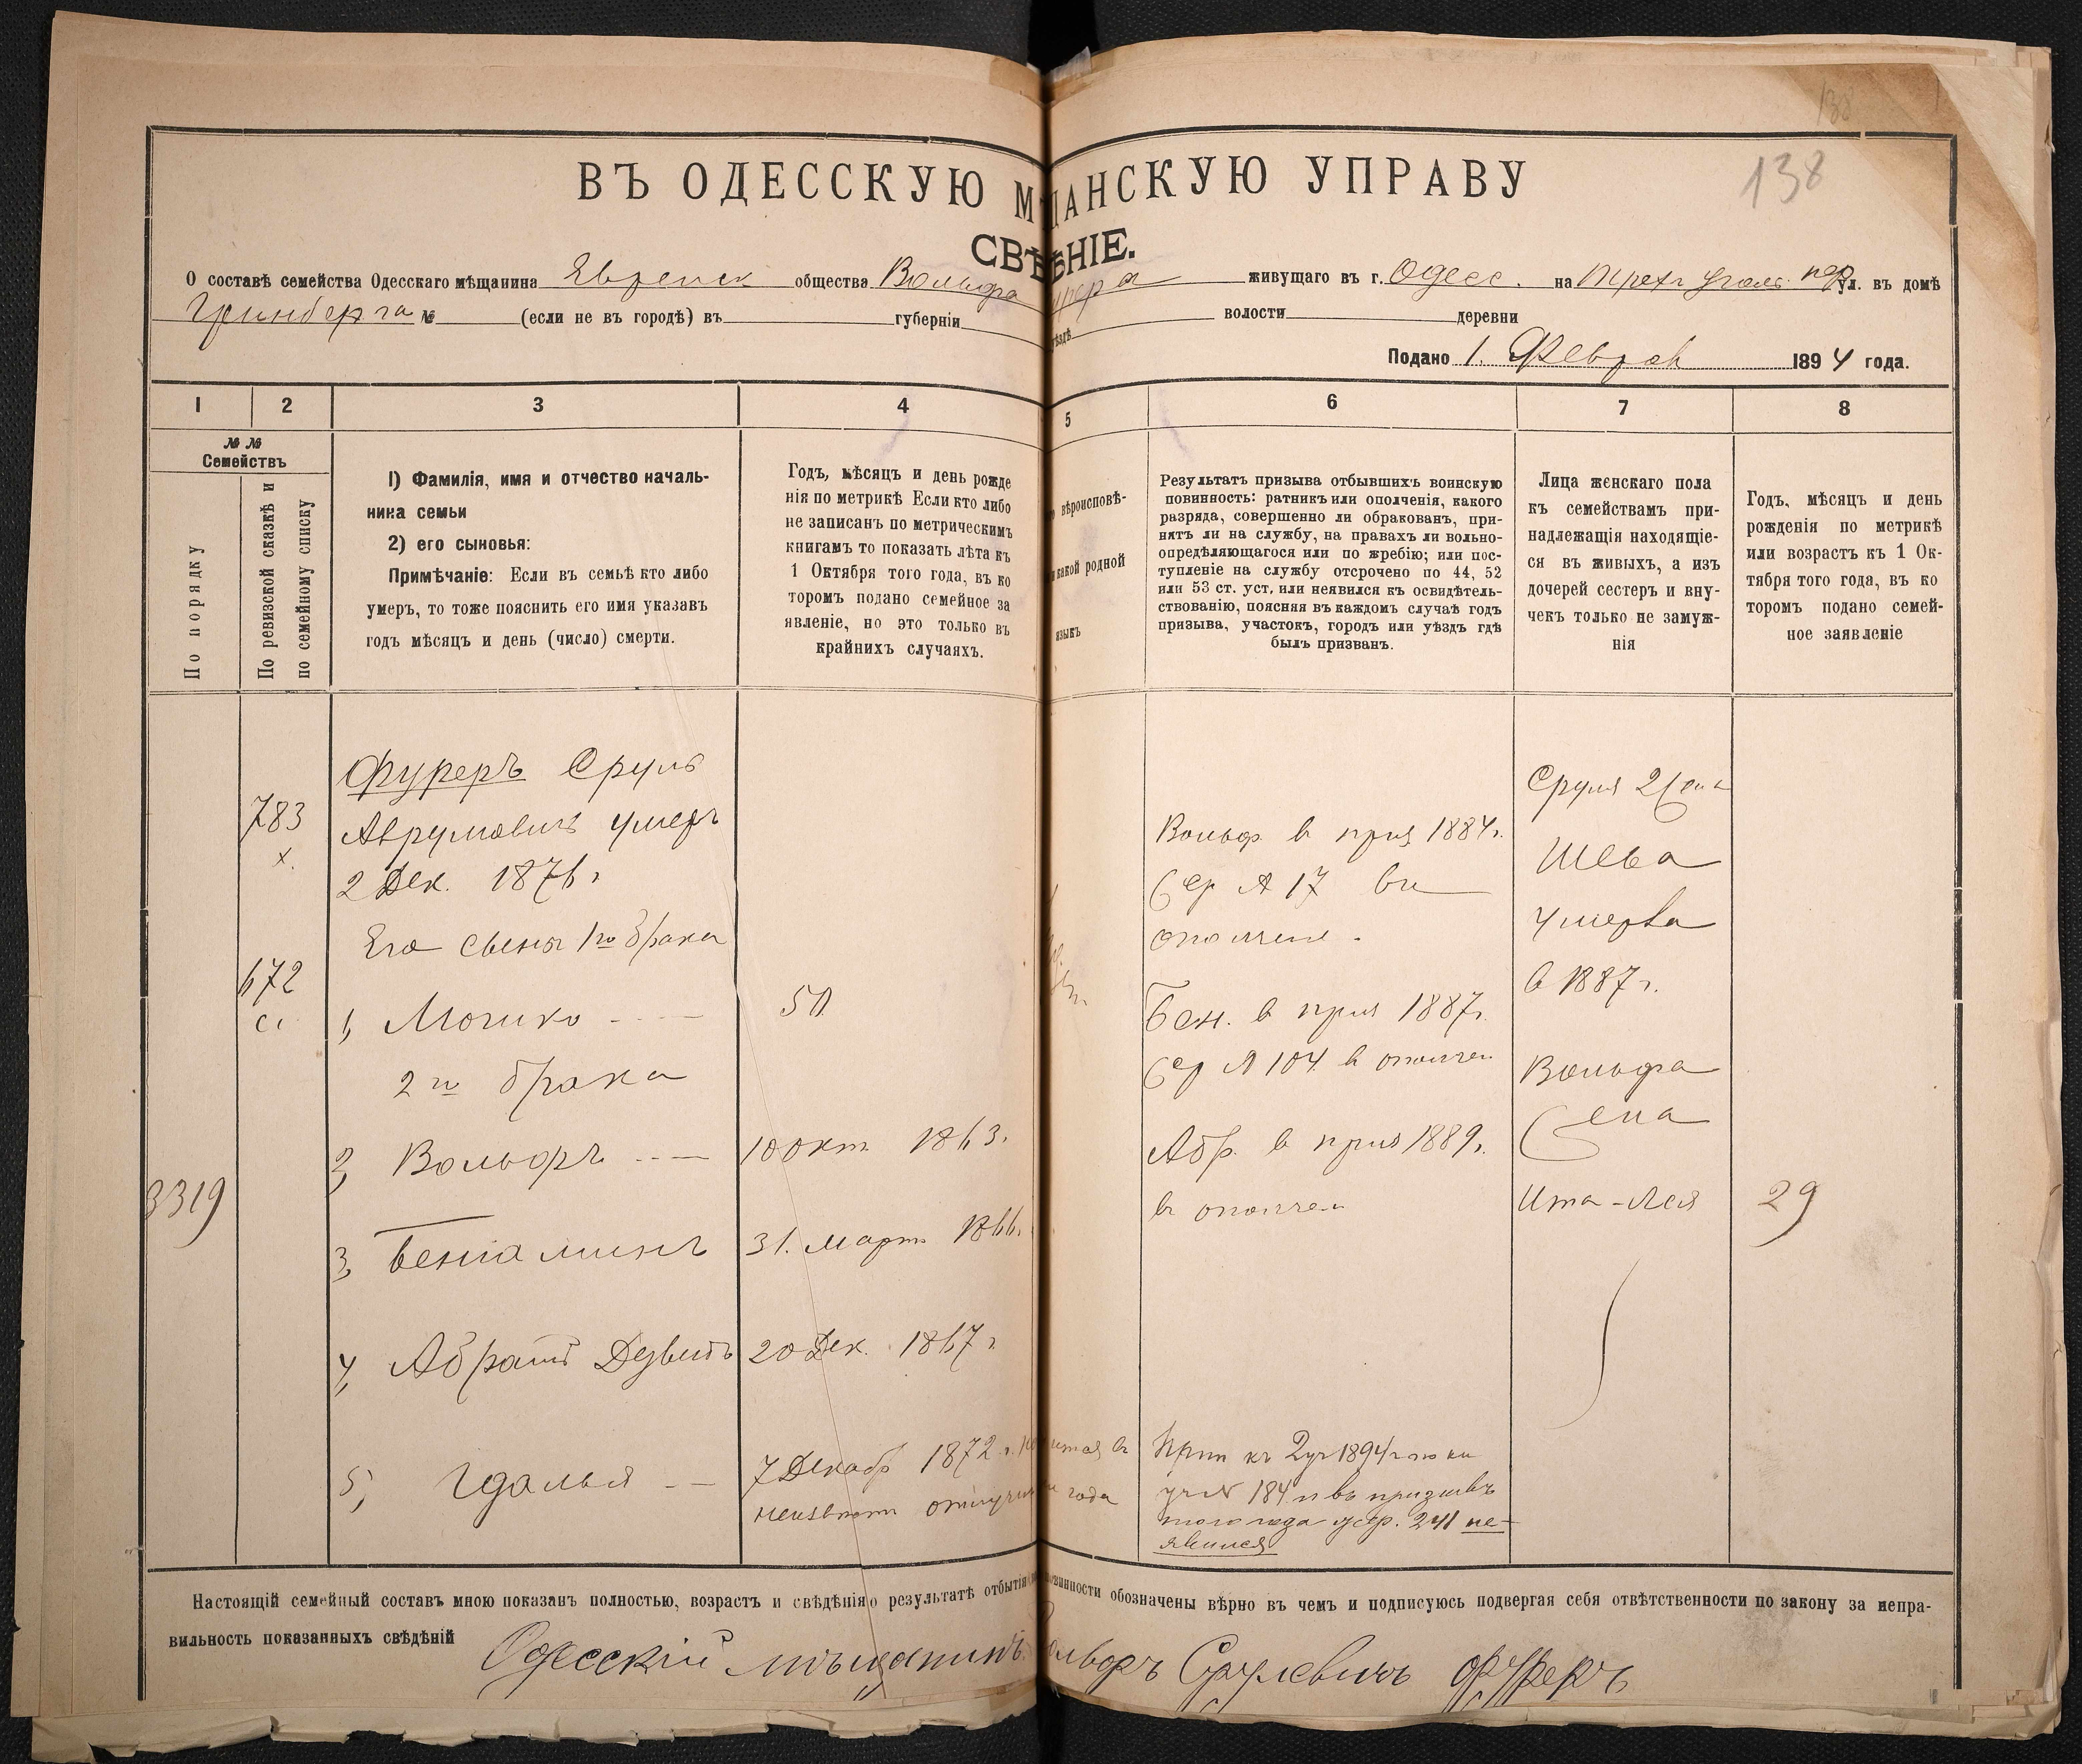 138
138
ВЪ ОДЕССКУЮ М ЩАНСКУЮ УПРАВУ
СВѢ ѢНІЕ.
О составѣ семейства Одесскаго мѣщанина Еврейск общества Вольфа живущаго въ г. Одесс. на Трехъ Уголь. пер ул. въ домѣ
Гринберга № (если не въ городѣ) въ губерніи уѣздѣ волости деревни
Подано 1. Феврал 1894 года.
1 2 3 4 5 6 7 8
№ №
Семействъ
По порядку
По ревизской сказкѣ и
по семейному списку
1) Фамилія, имя и отчество началь-
ника семьи
2) его сыновья:
Примѣчаніе: Если въ семьѣ кто либо
умеръ, то тоже пояснить его имя указавъ
годъ мѣсяцъ и день (число) смерти.
Годъ, мѣсяцъ и день рожде
нія по метрикѣ Если кто либо
не записанъ по метрическимъ
книгамъ то показать лѣта къ
1 Октября того года, въ ко
торомъ подано семейное за
явленіе, но это только въ
крайнихъ случаяхъ.
вѣроисповѣ-
какой родной
языкъ
Результатъ призыва отбывшихъ воинскую
повинность: ратникъ или ополченія, какого
разряда, совершенно ли обракованъ, при-
нятъ ли на службу, на правахъ ли вольно-
опредѣляющагося или по жребію; или пос-
тупленіе на службу отсрочено по 44, 52
или 53 ст. уст. или неявился къ освидѣтель-
ствованію, поясняя въ каждомъ случаѣ годъ
призыва, участокъ, городъ или уѣздъ гдѣ
былъ призванъ.
Лица женскаго пола
къ семействамъ при-
надлежащія находящіе-
ся въ живыхъ, а изъ
дочерей сестеръ и вну-
чекъ только не замуж-
нія
Годъ, мѣсяцъ и день
рожденія по метрикѣ
или возрастъ къ 1 Ок-
тября того года, въ ко
торомъ подано семей-
ное заявленіе
783
х.
672
с.
3319
Фуреръ Сруль
Аврумовичъ умеръ
2 Дек. 1876 г
Его сыны 1го брака
1, Мошко
2го брака
2, Вольфъ
3, Беніаминъ
4, Абрамъ Дувидъ
5, Гдалья
50
10 Окт 1863.
31. Март 1866.
20 Дек. 1867 г
7 Декабр 1872 г. въ
неизвестн года
Вольф. в приз 1884 г.
Жер № 17 в
ополчене.
Бен. в приз 1887 г.
Жер № 104 в ополчен
Абр. в приз 1889 г.
в ополчен
Прип къ 2 уч 1894 г по
уч № 184 и въ призывъ
того года жер. 241 не-
явился
Сруля 2 жена
Шева
умерла
в 1887 г.
Вольфа
жена
Ита-Лея
29
Настоящій семейный составъ мною показанъ полностью, возрастъ и свѣдѣнія о результатѣ отбытія повинности обозначены вѣрно въ чемъ и подписуюсь подвергая себя отвѣтственности по закону за непра-
вильность показанныхъ свѣдѣній Одесскій мѣщанинъ Вольфъ Срулевичъ Фуреръ